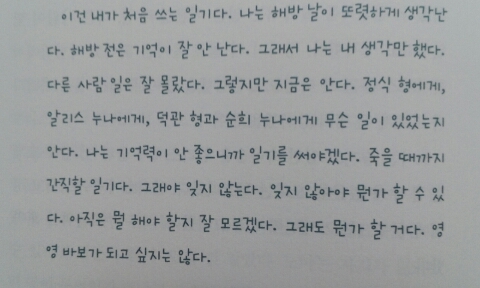 이건 내가 처음 쓰는 일기다. 나는 해방 날이 또렷하게 생각난
다. 해방 전은 기억이 잘 안 난다. 그래서 나는 내 생각만 했다.
다른 사람 일은 잘 몰랐다. 그렇지만 지금은 안다. 정식 형에게,
알리스 누나에게, 덕관 형과 순희 누나에게 무슨 일이 있었는지
안다. 나는 기억력이 안 좋으니까 일기를 써야겠다. 죽을 때까지
간직할 일기다. 그래야 잊지 않는다. 잊지 않아야 뭔가 할 수 있
다. 아직은 뭘 해야 할지 잘 모르겠다. 그래도 뭔가 할 거다. 영
영 바보가 되고 싶지는 않다.